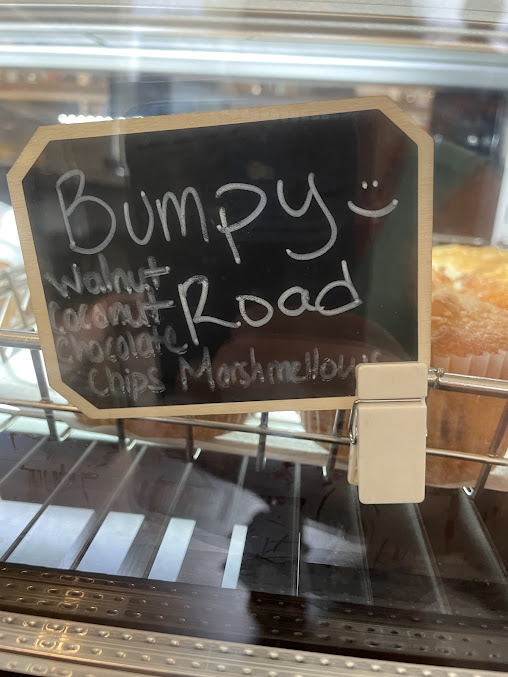 Bumpy :)
Road
walnut
coconut
chocolate
chips Marshmellows